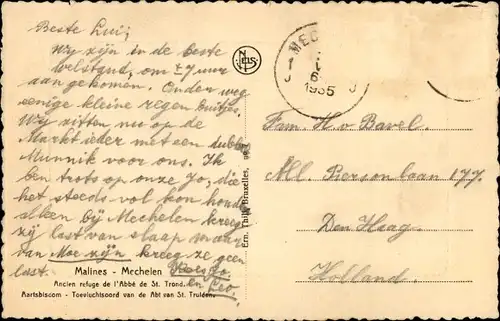 Beste Lui,
Wij zijn in de beste
welstand, om ± 7 uur
aangekomen. Onder weg
eenige kleine regen buitjes.
Wij zitten nu op de
Markt ieder met een dubb.
Munnik voor ons. Ik
ben trots op onze Jo, die
het steeds vol kon houd
alleen bij Mechelen kreeg
zij last van slaap maar
van Moe zijn kreeg ze geen
last. Kees Jo
en Leo.
Malines - Mechelen
Ancien refuge de l'Abbé de St. Trond.
Aartsbiscom - Toevluchtsoord van de Abt van St. Truiden.
NELS
Ern. Thill, Bruxelles,
MEC
6
1935
Fam. H. v. Bavel.
All. Piersonlaan 177.
Den Haag
Holland.